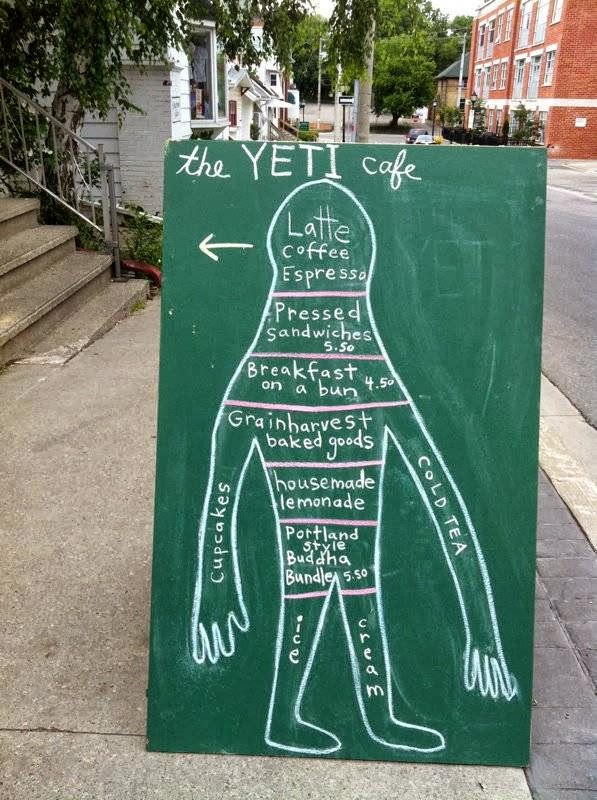 the YETI cafe
Latte
coffee
Espresso
Pressed
sandwiches
5.50
Breakfast
on a bun 4.50
Grainharvest
baked goods
housemade
lemonade
Portland
style
Buddha
Bundle 5.50
Cupcakes
COLD TEA
ice
cream